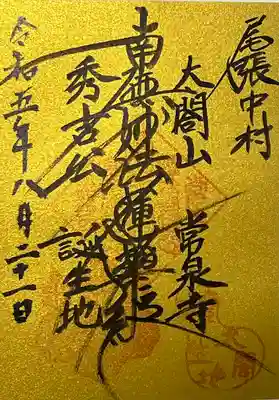 尾張中村
太閤山
常泉寺
南無妙法蓮華経
秀吉公
誕生地
令和五年八月二十一日